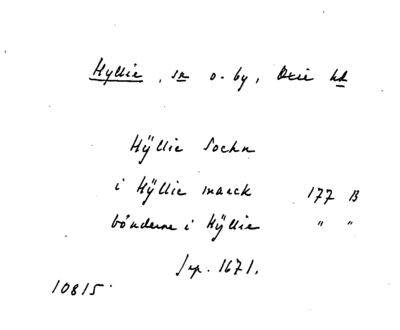 Hyllie, sn o. by, Oxie hd
Hÿllie Sochn
i Hÿllie marck 177 B
bönderne i Hÿllie " "
Jrp. 1671.
10815.